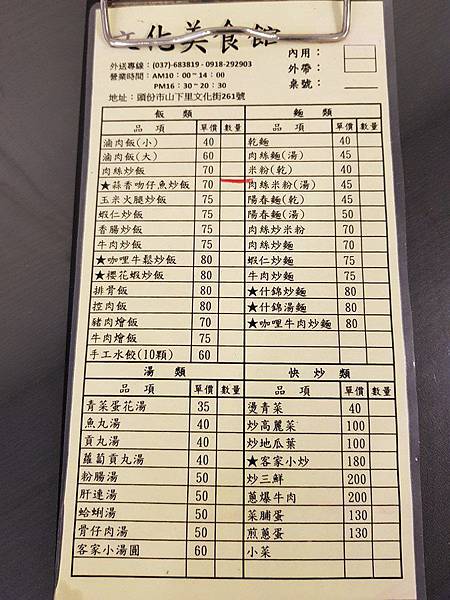 文化美食館
外送專線：(037)-683819、0918-292903
營業時間：AM10：00～14：00
PM16：30～20：30
地址：頭份市山下里文化街261號
內用：
外帶：
桌號：
飯 類
品 項 單價 數量
滷肉飯(小) 40
滷肉飯(大) 60
肉絲炒飯 70
★蒜香吻仔魚炒飯 70
玉米火腿炒飯 75
蝦仁炒飯 75
香腸炒飯 75
牛肉炒飯 75
★咖哩牛鬆炒飯 80
★櫻花蝦炒飯 80
排骨飯 80
控肉飯 80
豬肉燴飯 70
牛肉燴飯 75
手工水餃(10顆) 60
麵 類
品 項 單價 數量
乾麵 40
肉絲麵(湯) 45
米粉(乾) 40
肉絲米粉(湯) 45
陽春麵(乾) 45
陽春麵(湯) 50
肉絲炒米粉 70
肉絲炒麵 70
蝦仁炒麵 75
牛肉炒麵 75
★什錦炒麵 80
★什錦湯麵 80
★咖哩牛肉炒麵 80
湯 類
品 項 單價 數量
青菜蛋花湯 35
魚丸湯 40
貢丸湯 40
蘿蔔貢丸湯 40
粉腸湯 50
肝連湯 50
蛤蜊湯 50
骨仔肉湯 50
客家小湯圓 60
快 炒 類
品 項 單價 數量
燙青菜 40
炒高麗菜 100
炒地瓜葉 100
★客家小炒 180
炒三鮮 200
蔥爆牛肉 200
菜脯蛋 130
煎蔥蛋 130
小菜